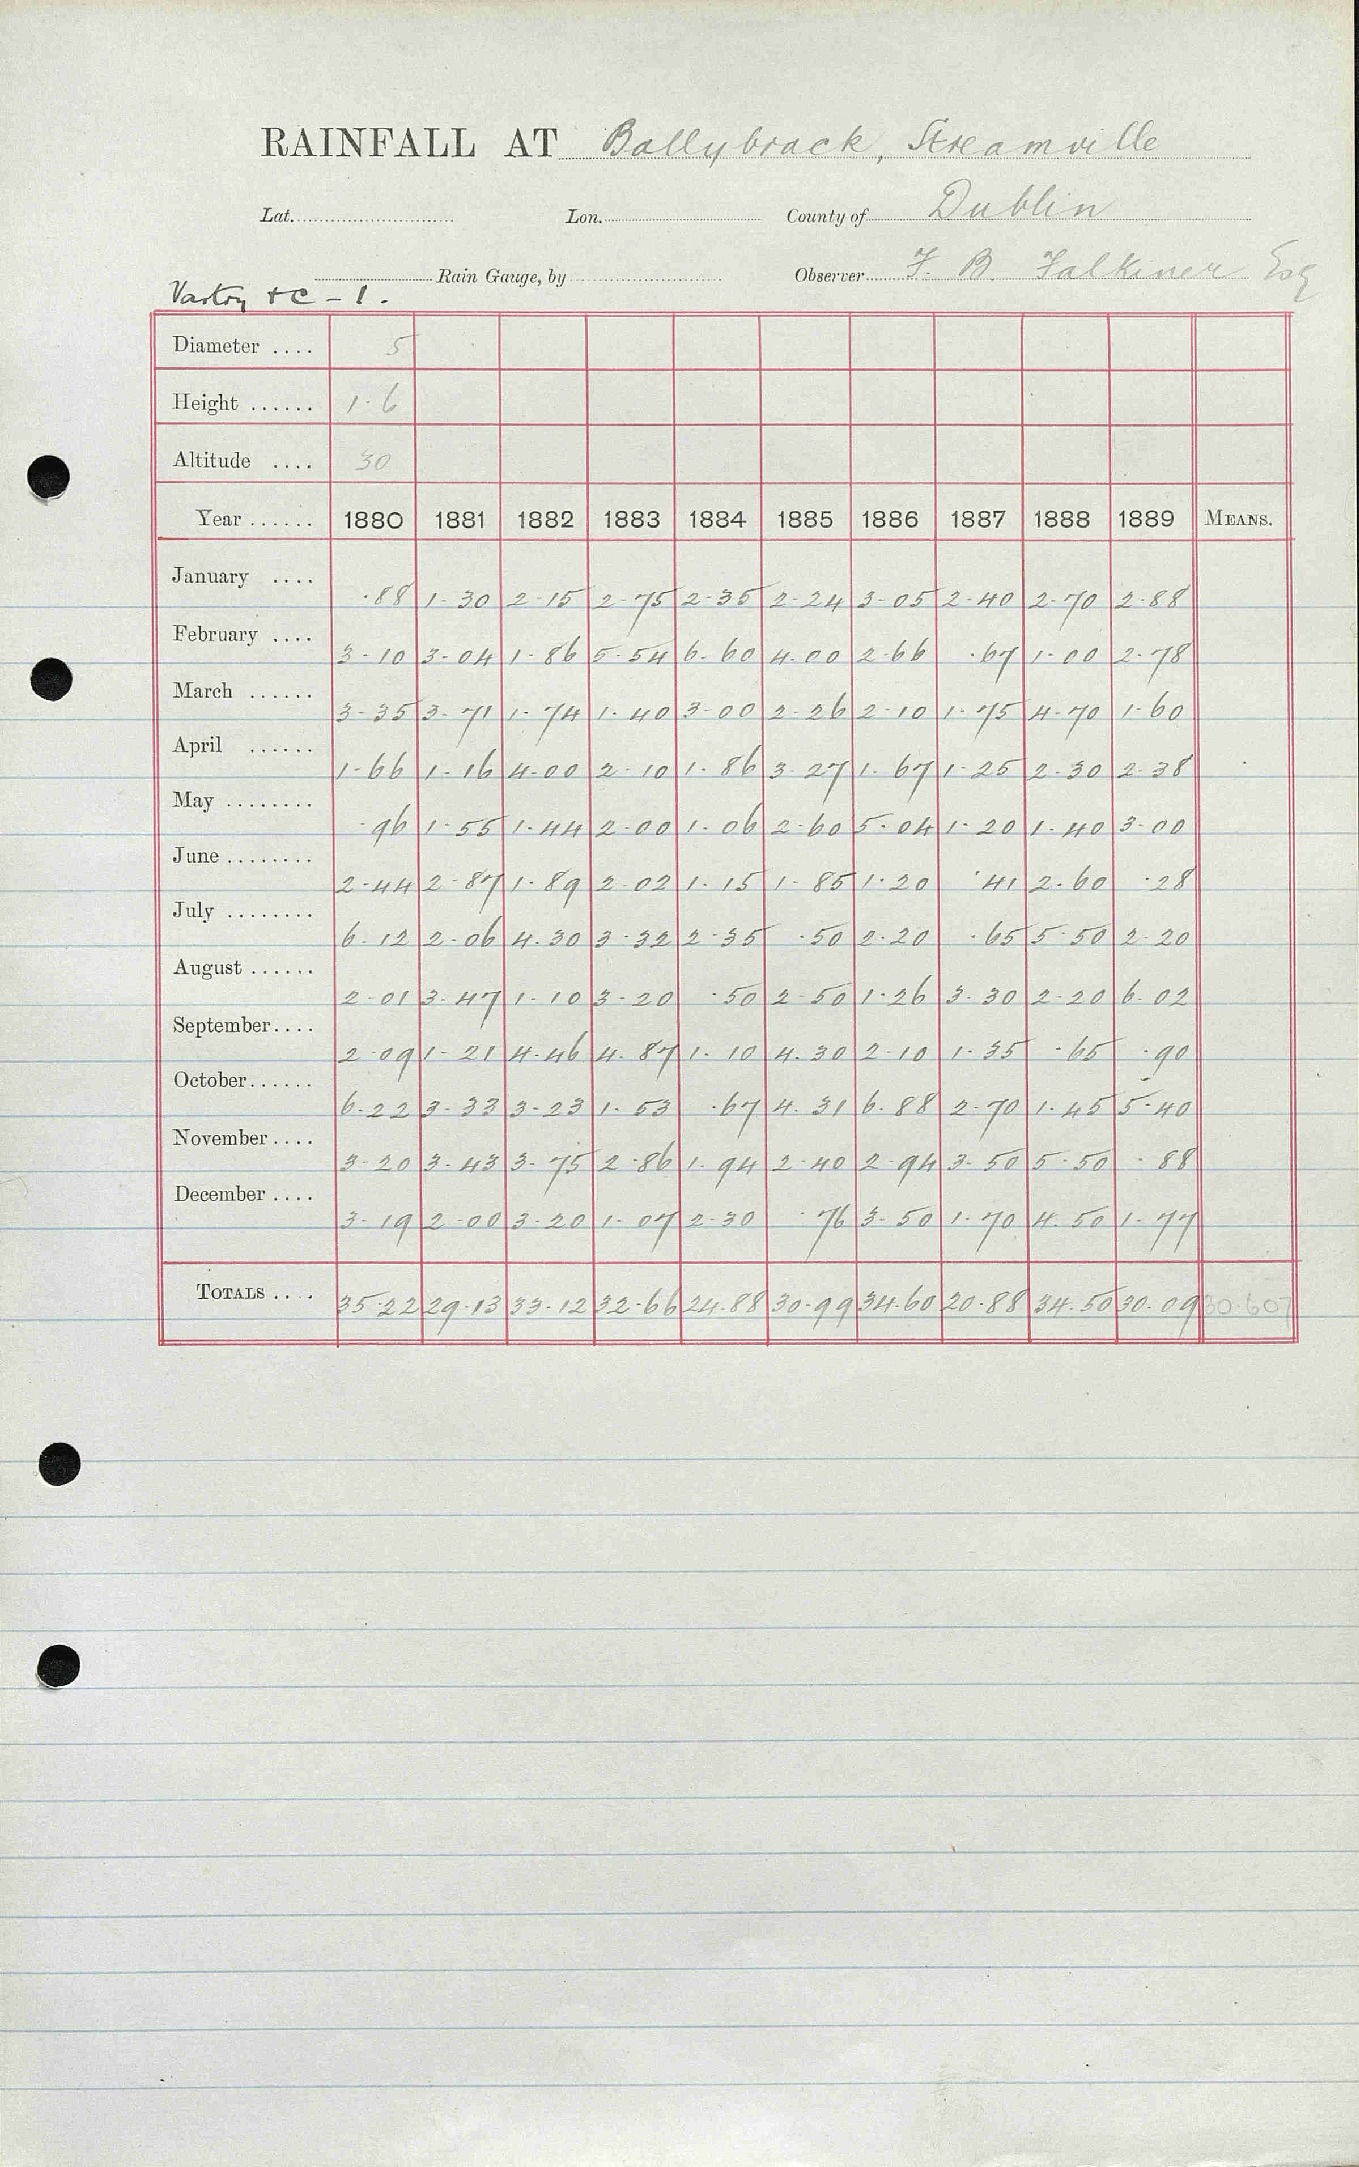 RAINFALL AT Ballybrack, Streamville
Lat. Lon. County of Dublin
Rain Gauge, by Observer F. B. Falkiner Esq
Vartry &c - 1.
Diameter .... 5
Height ...... 1.6
Altitude .... 30
Year ...... 1880 1881 1882 1883 1884 1885 1886 1887 1888 1889 MEANS.
January .... .88 1.30 2.15 2.75 2.35 2.24 3.05 2.40 2.70 2.88
February .... 3.10 3.04 1.86 5.54 6.60 4.00 2.66 .67 1.00 2.78
March ...... 3.35 3.71 1.74 1.40 3.00 2.26 2.10 1.75 4.70 1.60
April ...... 1.66 1.16 4.00 2.10 1.86 3.27 1.67 1.25 2.30 2.38
May ........ .96 1.55 1.44 2.00 1.06 2.60 5.04 1.20 1.40 3.00
June ........ 2.44 2.87 1.89 2.02 1.15 1.85 1.20 .41 2.60 .28
July ........ 6.12 2.06 4.30 3.32 2.35 .50 2.20 .65 5.50 2.20
August ...... 2.01 3.47 1.10 3.20 .50 2.50 1.26 3.30 2.20 6.02
September .... 2.09 1.21 4.46 4.87 1.10 4.30 2.10 1.35 .65 .90
October ...... 6.22 3.33 3.23 1.53 .67 4.31 6.88 2.70 1.45 5.40
November .... 3.20 3.43 3.75 2.86 1.94 2.40 2.94 3.50 5.50 .88
December .... 3.19 2.00 3.20 1.07 2.30 .76 3.50 1.70 4.50 1.77
TOTALS .... 35.22 29.13 33.12 32.66 24.88 30.99 34.60 20.88 34.50 30.09 30.607